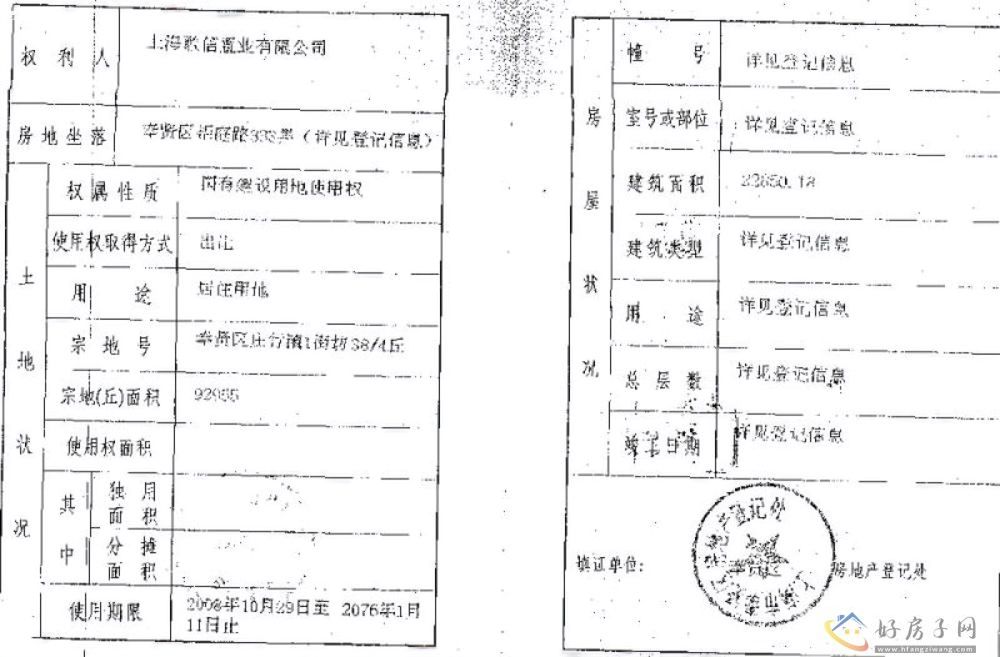 权利人
上海联信置业有限公司
房地坐落
奉贤区 333弄（详见登记信息）
土地状况
权属性质
国有建设用地使用权
使用权取得方式
出让
用途
居住用地
宗地号
奉贤区庄行镇1街坊38/4丘
宗地(丘)面积
92955
使用权面积
其中
独用面积
分摊面积
使用期限
2008年10月29日至 2076年1月
11日止
房屋状况
幢号
详见登记信息
室号或部位
详见登记信息
建筑面积
22650.18
建筑类型
详见登记信息
用途
详见登记信息
总层数
详见登记信息
竣工日期
详见登记信息
填证单位:
房地产登记处
好房子网
www.hfangziwang.com